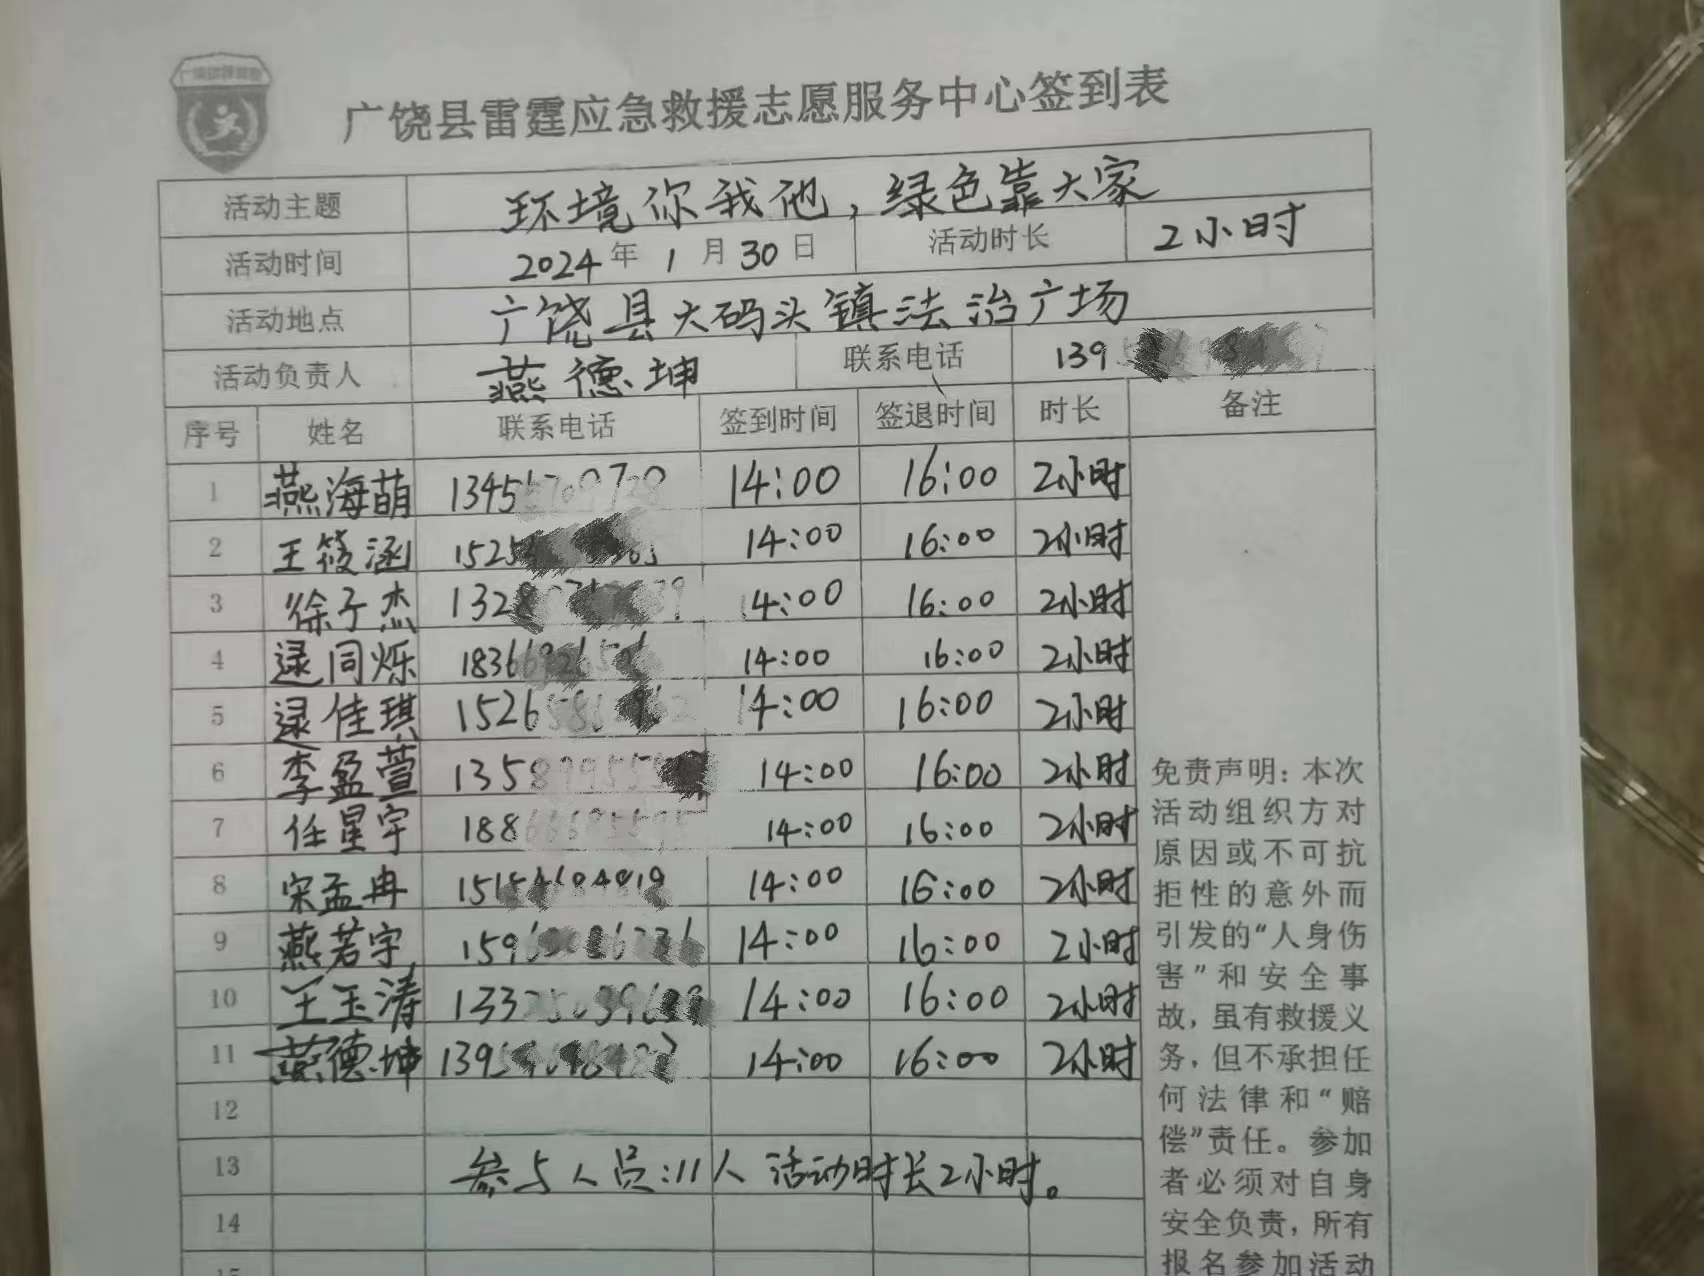 广饶县雷霆应急救援志愿服务中心签到表
活动主题 环境你我他,绿色靠大家
活动时间 2024年1月30日 活动时长 2小时
活动地点 广饶县大码头镇法治广场
活动负责人 燕德坤 联系电话 139
序号 姓名 联系电话 签到时间 签退时间 时长 备注
1 燕海萌 1345 14:00 16:00 2小时
2 王筱涵 1525 14:00 16:00 2小时
3 徐子杰 132 14:00 16:00 2小时
4 逯同烁 1836 14:00 16:00 2小时
5 逯佳琪 1526 14:00 16:00 2小时
6 李盈萱 135 14:00 16:00 2小时
7 任星宇 188 14:00 16:00 2小时
8 宋孟冉 151 14:00 16:00 2小时
9 燕若宇 159 14:00 16:00 2小时
10 王玉涛 133 14:00 16:00 2小时
11 燕德坤 139 14:00 16:00 2小时
12
13 参与人员:11人 活动时长2小时。
14
免责声明:本次
活动组织方对
原因或不可抗
拒性的意外而
引发的“人身伤
害”和安全事
故,虽有救援义
务,但不承担任
何法律和“赔
偿”责任。参加
者必须对自身
安全负责,所有
报名参加活动